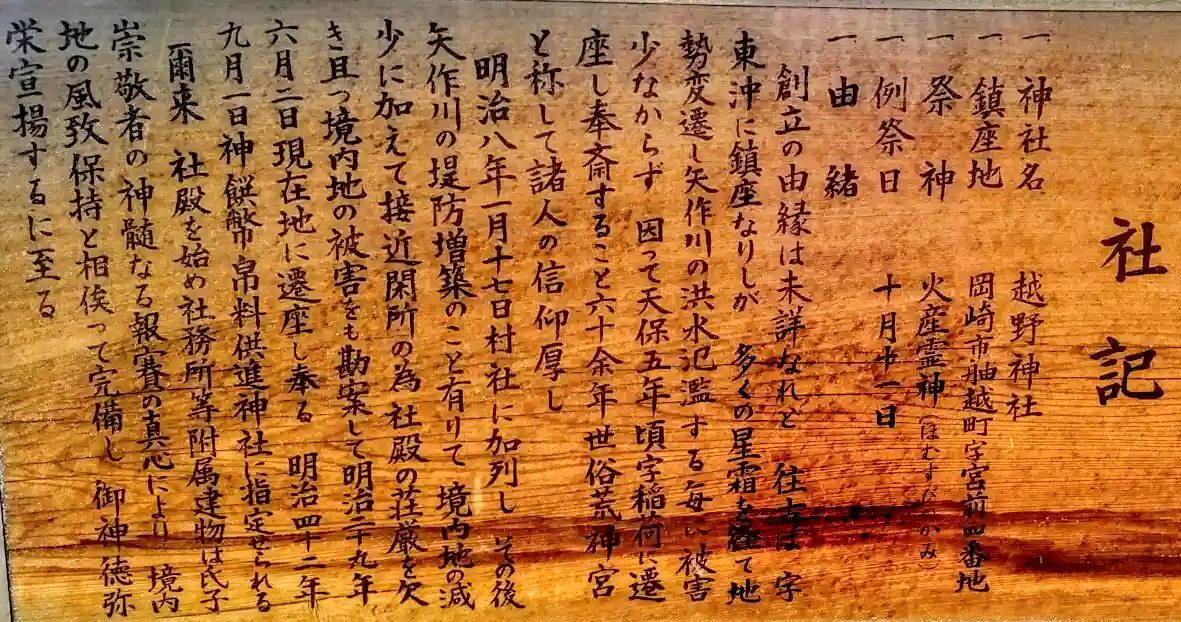 社記
一 神社名 越野神社
一 鎮座地 岡崎市舳越町字宮前四番地
一 祭神 火産霊神(ほむすびのかみ)
一 例祭日 十月十一日
一 由緒
創立の由縁は未詳なれど 往古は 字
東沖に鎮座なりしが 多くの星霜を経て地
勢変遷し矢作川の洪水氾濫する毎に被害
少なからず 因って天保五年頃字稲荷に遷
座し奉斎すること六十余年世俗荒神宮
と称して諸人の信仰厚し
明治八年一月十七日村社に加列し その後
矢作川の堤防増築のこと有りて 境内地の減
少に加えて接近閑所の為社殿の荘厳を欠
き且つ境内地の被害をも勘案して明治二十九年
六月二日現在地に遷座し奉る 明治四十二年
九月一日神饌幣帛料供進神社に指定せられる
爾来 社殿を始め社務所等附属建物は氏子
崇敬者の神髄なる報賽の真心により 境内
地の風致保持と相俟って完備し 御神徳弥
栄宣揚するに至る